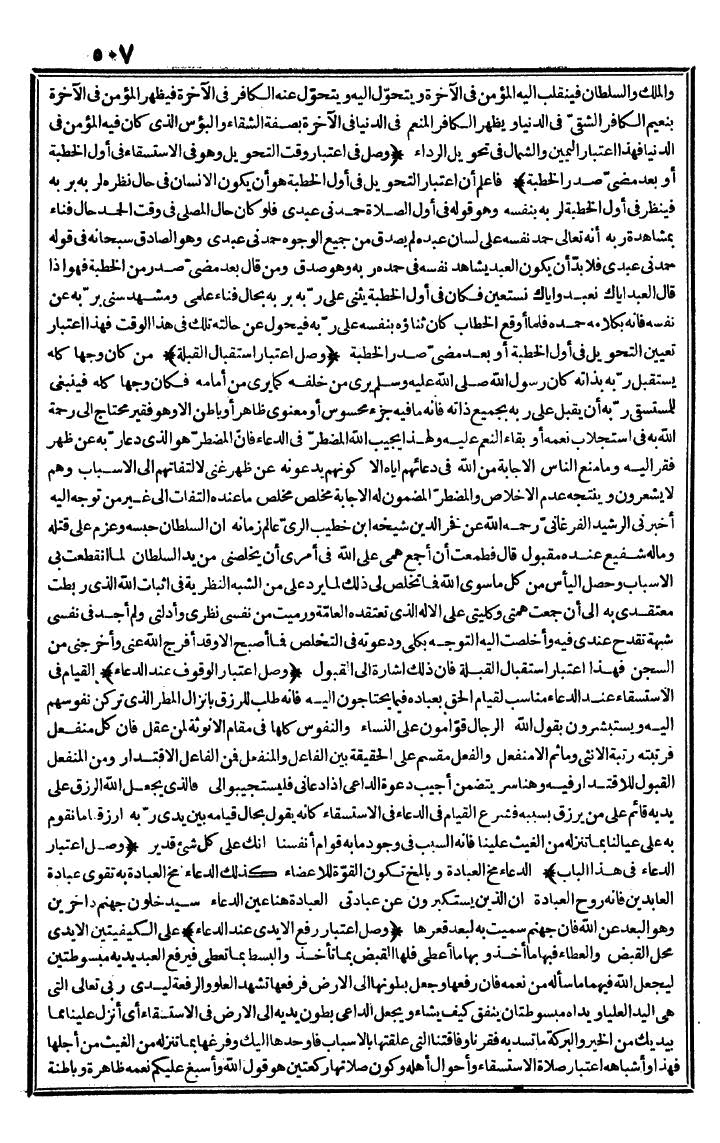 ٥٠٧
والملك والسلطان فينقلب اليه المؤمن فى الآخرة ويتحوّل اليه ويتحوّل عنه الكافر فى الآخرة فيظهر المؤمن فى الآخرة
بنعيم الكافر الشقىّ فى الدنيا ويظهر الكافر المنعم فى الدنيا فى الآخرة بصفة الشقاء والبؤس الذى كان فيه المؤمن فى
الدنيا فهذا اعتبار اليمين والشمال فى تحويل الرداء ﴿وصل فى اعتبار وقت التحويل وهو فى الاستسقاء فى أول الخطبة
أو بعد مضىّ صدر الخطبة﴾ فاعلم أن اعتبار التحويل فى أول الخطبة هو أن يكون الانسان فى حال نظره لربه بربه
فينظر فى أول الخطبة لربه بنفسه وهو قوله فى أول الصلاة حمدنى عبدى فلو كان حال المصلى فى وقت الحمد حال فناء
بمشاهدة ربه أنه تعالى حمد نفسه على لسان عبده لم يصدق من جميع الوجوه حمدنى عبدى وهو الصادق سبحانه فى قوله
حمدنى عبدى فلا بدّ أن يكون العبد يشاهد نفسه فى حمده ربه وهو صدق ومن قال بعد مضىّ صدر من الخطبة فهو اذا
قال العبد اياك نعبد واياك نستعين فكان فى أول الخطبة يثنى على ربه بربه بحال فناء علمى ومشهد سنى بربه عن
نفسه فانه بكلامه حمده فلما أوقع الخطاب كان ثناؤه بنفسه على ربه فيحول عن حالته تلك فى هذا الوقت فهذا اعتبار
تعيين التحويل فى أول الخطبة أو بعد مضىّ صدر الخطبة ﴿وصل اعتبار استقبال القبلة﴾ من كان وجها كله
يستقبل ربه بذاته كان رسول الله صلى الله عليه وسلم يرى من خلفه كما يرى من أمامه فكان وجها كله فينبغى
للمستسقى ربه أن يقبل على ربه بجميع ذاته فانه ما فيه جزء محسوس أو معنوى ظاهر أو باطن الا وهو فقير محتاج الى رحمة
الله به فى استجلاب نعمه أو بقاء النعم عليه ولهذا يجيب الله المضطرّ فى الدعاء فان المضطرّ هو الذى دعا ربه عن ظهر
فقر اليه وما منع الناس الاجابة من الله فى دعائهم اياه الا كونهم يدعونه عن ظهر غنى لالتفاتهم الى الاسباب وهم
لا يشعرون وينتجه عدم الاخلاص والمضطرّ المضمون له الاجابة مخلص مخلص ما عنده التفات الى غير من توجه اليه
أخبرنى الرشيد الفرغانىّ رحمه الله عن فخر الدين شيخه ابن خطيب الرىّ عالم زمانه ان السلطان حبسه وعزم على قتله
وما له شفيع عنده مقبول قال فطمعت أن أجمع همى على الله فى أمرى أن يخلصنى من يد السلطان لما انقطعت بى
الاسباب وحصل اليأس من كل ما سوى الله فما تخلص لى ذلك لما يرد على من الشبه النظرية فى اثبات الله الذى ربطت
معتقدى به الى أن جمعت همتى وكليتى على الاله الذى تعتقده العامّة ورميت من نفسى نظرى وأدلتى ولم أجد فى نفسى
شبهة تقدح عندى فيه وأخلصت اليه التوجه بكلى ودعوته فى التخلص فما أصبح الا وقد أفرج الله عنى وأخرجنى من
السجن فهذا اعتبار استقبال القبلة فان ذلك اشارة الى القبول ﴿وصل اعتبار الوقوف عند الدعاء﴾ القيام فى
الاستسقاء عند الدعاء مناسب لقيام الحق بعباده فيما يحتاجون اليه فانه طلب للرزق بانزال المطر الذى تركن نفوسهم
اليه ويستبشرون بقول الله الرجال قوّامون على النساء والنفوس كلها فى مقام الانوثة لمن عقل فان كل منفعل
فرتبته رتبة الانثى وما ثم الا منفعل والفعل مقسم على الحقيقة بين الفاعل والمنفعل فمن الفاعل الاقتدار ومن المنفعل
القبول للاقتدار فيه وهنا سر يتضمن أجيب دعوة الداعى اذا دعانى فليستجيبوا لى فالذى يجعل الله الرزق على
يديه قائم على من يرزق بسببه فشرع القيام فى الدعاء فى الاستسقاء كانه يقول بحال قيامه بين يدى ربه ارزقنا ما نقوم
به على عيالنا بما تنزله من الغيث علينا فانه السبب فى وجود ما به قوام أنفسنا انك على كل شئ قدير ﴿وصل اعتبار
الدعاء فى هذا الباب﴾ الدعاء مخ العبادة وبالمخ تكون القوّة للاعضاء كذلك الدعاء مخ العبادة به تقوى عبادة
العابدين فانه روح العبادة ان الذين يستكبرون عن عبادتى العبادة هنا عين الدعاء سيدخلون جهنم داخرين
وهو البعد عن الله فان جهنم سميت به لبعد قعرها ﴿وصل اعتبار رفع الايدى عند الدعاء﴾ على الكيفيتين الايدى
محل القبض والعطاء فبها ما أخذ وبها ما أعطى فلها القبض بما تأخذ والبسط بما تعطى فيرفع العبد يديه مبسوطتين
ليجعل الله فيهما ما سأله من نعمه فان رفعها وجعل بطونها الى الارض فرفعها تشهد العلو والرفعة ليدى ربى تعالى التى
هى اليد العليا ويداه مبسوطتان ينفق كيف يشاء ويجعل الداعى بطون يديه الى الارض فى الاستسقاء أى أنزل علينا بما
بيديك من الخير والبركة ما تسد به فقرنا وفاقتنا التى علقتها بالاسباب فاوحدها اليك وفرغها بما تنزله من الغيث من أجلها
فهذا وأشباهه اعتبار صلاة الاستسقاء وأحوال أهله وكون صلاتها ركعتين هو قول الله وأسبغ عليكم نعمه ظاهرة وباطنة